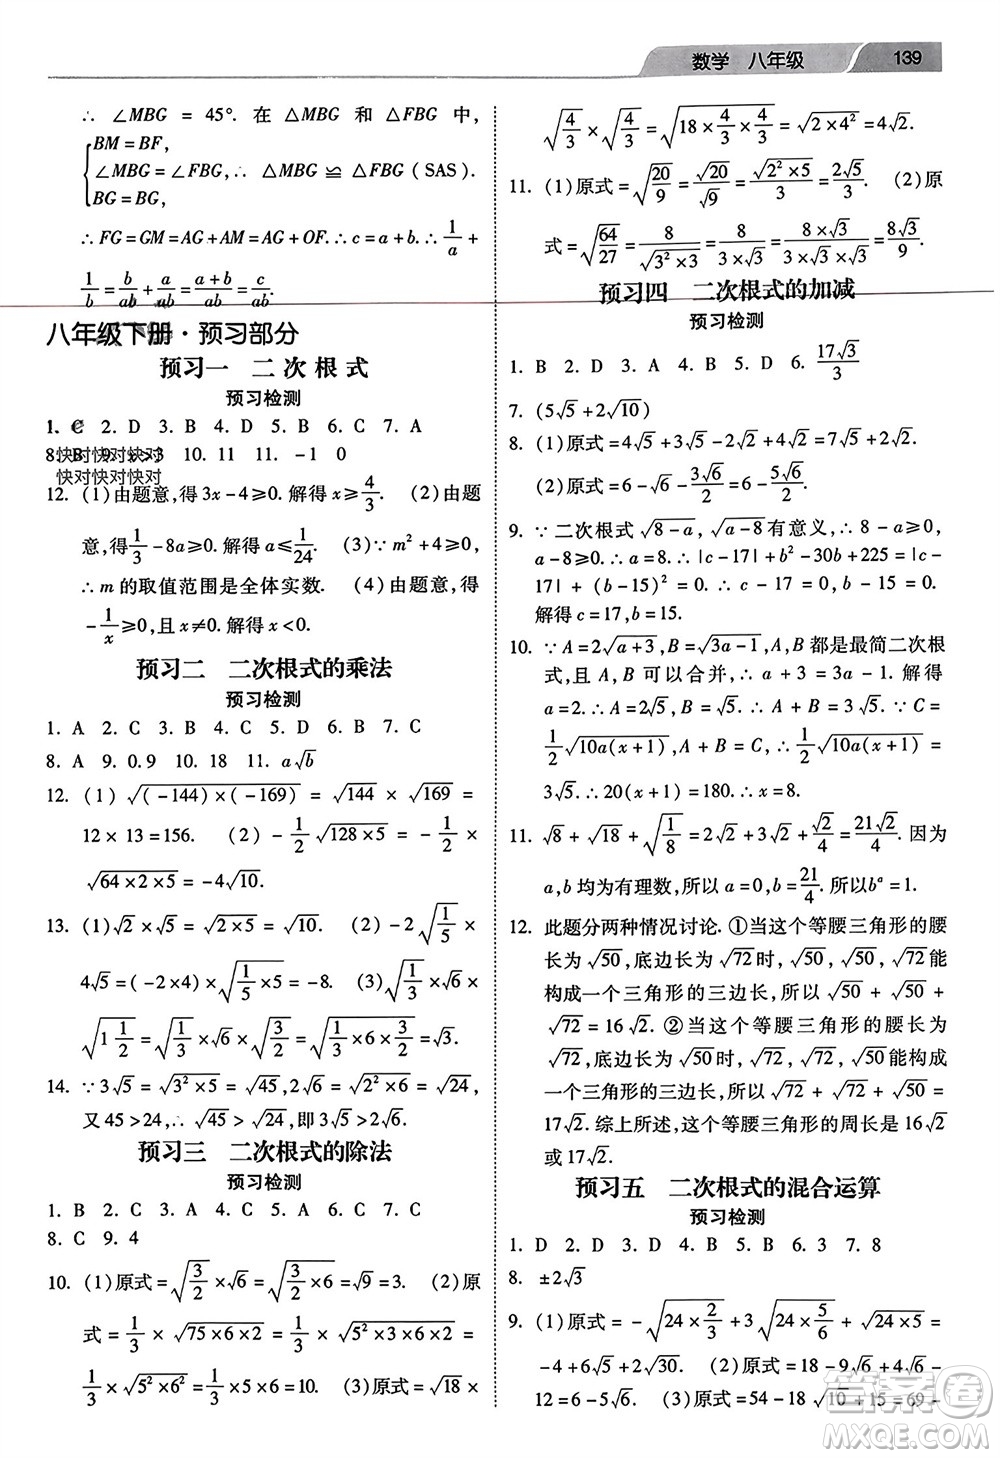 数学 八年级 139
∴ ∠MBG = 45°. 在 △MBG 和 △FBG 中,
{BM=BF,
∠MBG=∠FBG, ∴ △MBG≌△FBG(SAS).
BG=BG,
∴FG=GM=AG+AM=AG+OF. ∴c=a+b. ∴1/a+
1/b=b/ab+a/ab=(a+b)/ab=c/ab.
八年级下册·预习部分
预习一 二次根式
预习检测
1. C 2. D 3. B 4. D 5. B 6. C 7. A
8. B 9. x>3 10. 10 11. -1 0
快对快对快对
快对快对快对
12. (1)由题意,得3x-4≥0. 解得x≥4/3. (2)由题
意,得1/3-8a≥0. 解得a≤1/24. (3)∵m²+4≥0,
∴m的取值范围是全体实数. (4)由题意,得
-1/x≥0,且x≠0. 解得x<0.
预习二 二次根式的乘法
预习检测
1. A 2. C 3. C 4. B 5. D 6. B 7. C
8. A 9. 0.9 10. 18 11. a√b
12. (1) √((-144)×(-169)) = √144 × √169 =
12×13=156. (2) -1/2√(128×5) = -1/2 ×
√(64×2×5)=-4√10.
13. (1)√2×√5=√(2×5)=√10. (2)-2√(1/5)×
4√5=(-2×4)×√(1/5×5)=-8. (3)√(1 1/2)×√6=
√(1 1/2)×√(1/2)×√6=√(1/2)×√6=√(1/2×6×1/2)=√6/2.
14. ∵3√5=√(3²×5)=√45,2√6=√(2²×6)=√24,
又45>24,∴√45>√24,即3√5>2√6.
预习三 二次根式的除法
预习检测
1. B 2. C 3. A 4. C 5. D 6. B 7. C
8. C 9. 4
10. (1)原式=√(3/2)×√6=√(3/2×6)=√9=3. (2)原
式=1/3×√(75×6×2)=1/3×√(5²×3×6×2)=
1/3×√(5²×6²)=1/3×5×6=10. (3)原式=√18×
√(4/3)×√(4/3)=√(18×4/3×4/3)=√(2×4²)=4√2.
11. (1)原式=√(20/9)=√20/√9=√(2²×5)/3=2√5/3. (2)原
式=√(64/27)=8/√(3²×3)=8/(3×√3)=(8×√3)/(3×√3×√3)=8√3/9.
预习四 二次根式的加减
预习检测
1. B 2. D 3. A 4. C 5. B 6. 17√3/3
7. (5√5+2√10)
8. (1)原式=4√5+3√5-2√2+4√2=7√5+2√2.
(2)原式=6-√6-3√6/2=6-5√6/2.
9. ∵二次根式√(8-a),√(a-8)有意义,∴8-a≥0,
a-8≥0. ∴a=8. ∴|c-17|+b²-30b+225=|c-
17|+(b-15)²=0. ∴c-17=0,b-15=0.
解得c=17,b=15.
10. ∵A=2√(a+3),B=√(3a-1),A,B都是最简二次根
式,且A,B可以合并,∴a+3=3a-1. 解得
a=2. ∴A=2√5,B=√5. ∴A+B=3√5. ∵C=
1/2√(10a(x+1)),A+B=C,∴1/2√(10a(x+1))=
3√5. ∴20(x+1)=180. ∴x=8.
11. √8+√18+√(1/8)=2√2+3√2+√2/4=21√2/4. 因为
a,b均为有理数,所以a=0,b=21/4. 所以bᵃ=1.
12. 此题分两种情况讨论. ①当这个等腰三角形的腰
长为√50,底边长为√72时,√50,√50,√72能
构成一个三角形的三边长,所以√50+√50+
√72=16√2. ②当这个等腰三角形的腰长为
√72,底边长为√50时,√50,√72,√72能构成
一个三角形的三边长,所以√72+√72+√50=
17√2. 综上所述,这个等腰三角形的周长是16√2
或17√2.
预习五 二次根式的混合运算
预习检测
1. D 2. D 3. D 4. A 5. B 6. 3 7. 8
8. ±2√3
9. (1)原式=-√(24×2/3)+3√(24×5/6)+√(24×5/4)=
-4+6√5+2√30. (2)原式=18-9√6+2√6-
12=6-5√6. (3)原式=54-18√10+15=69-
答案圈
MXQE.COM